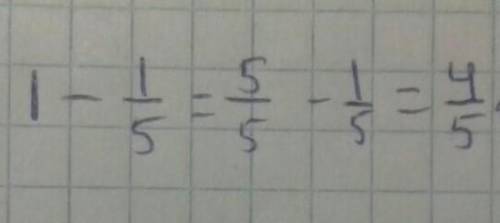 1 - 1/5 = 5/5 - 1/5 = 4/5